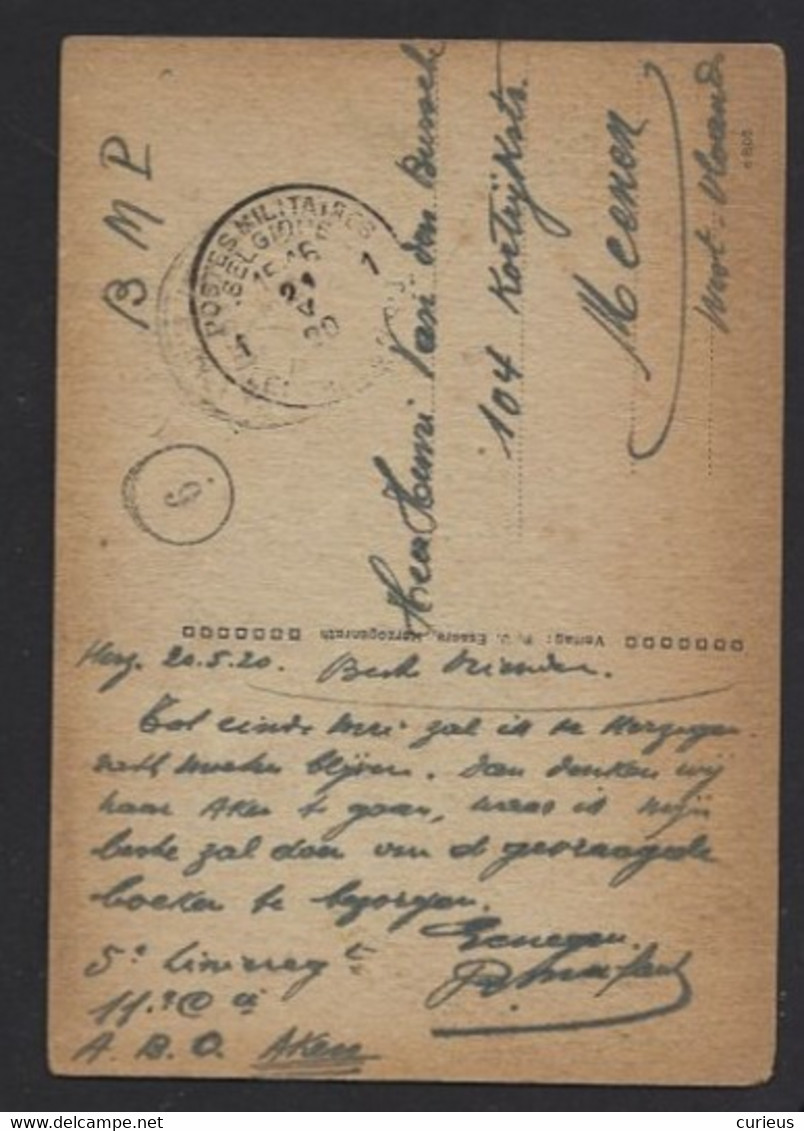 B M P
POSTES MILITAIRES
BELGIQUE
1
6
Heer Henri Van den Bussche
104 Kortrijkstr.
Meenen
West-Vlaand
Verlag: P. J. Essers, Herzogenrath
Herz. 20.5.20. Beste Vrienden.
Tot einde Mei zal ik te Herzogen
rath moeten blijven. Dan denken wij
naar Aken te gaan, waar ik mijn
beste zal doen om de gevraagde
boeken te bezorgen.
Genegen
5e Linieregt
11.e Cie
A. B. O. Aken
curieus